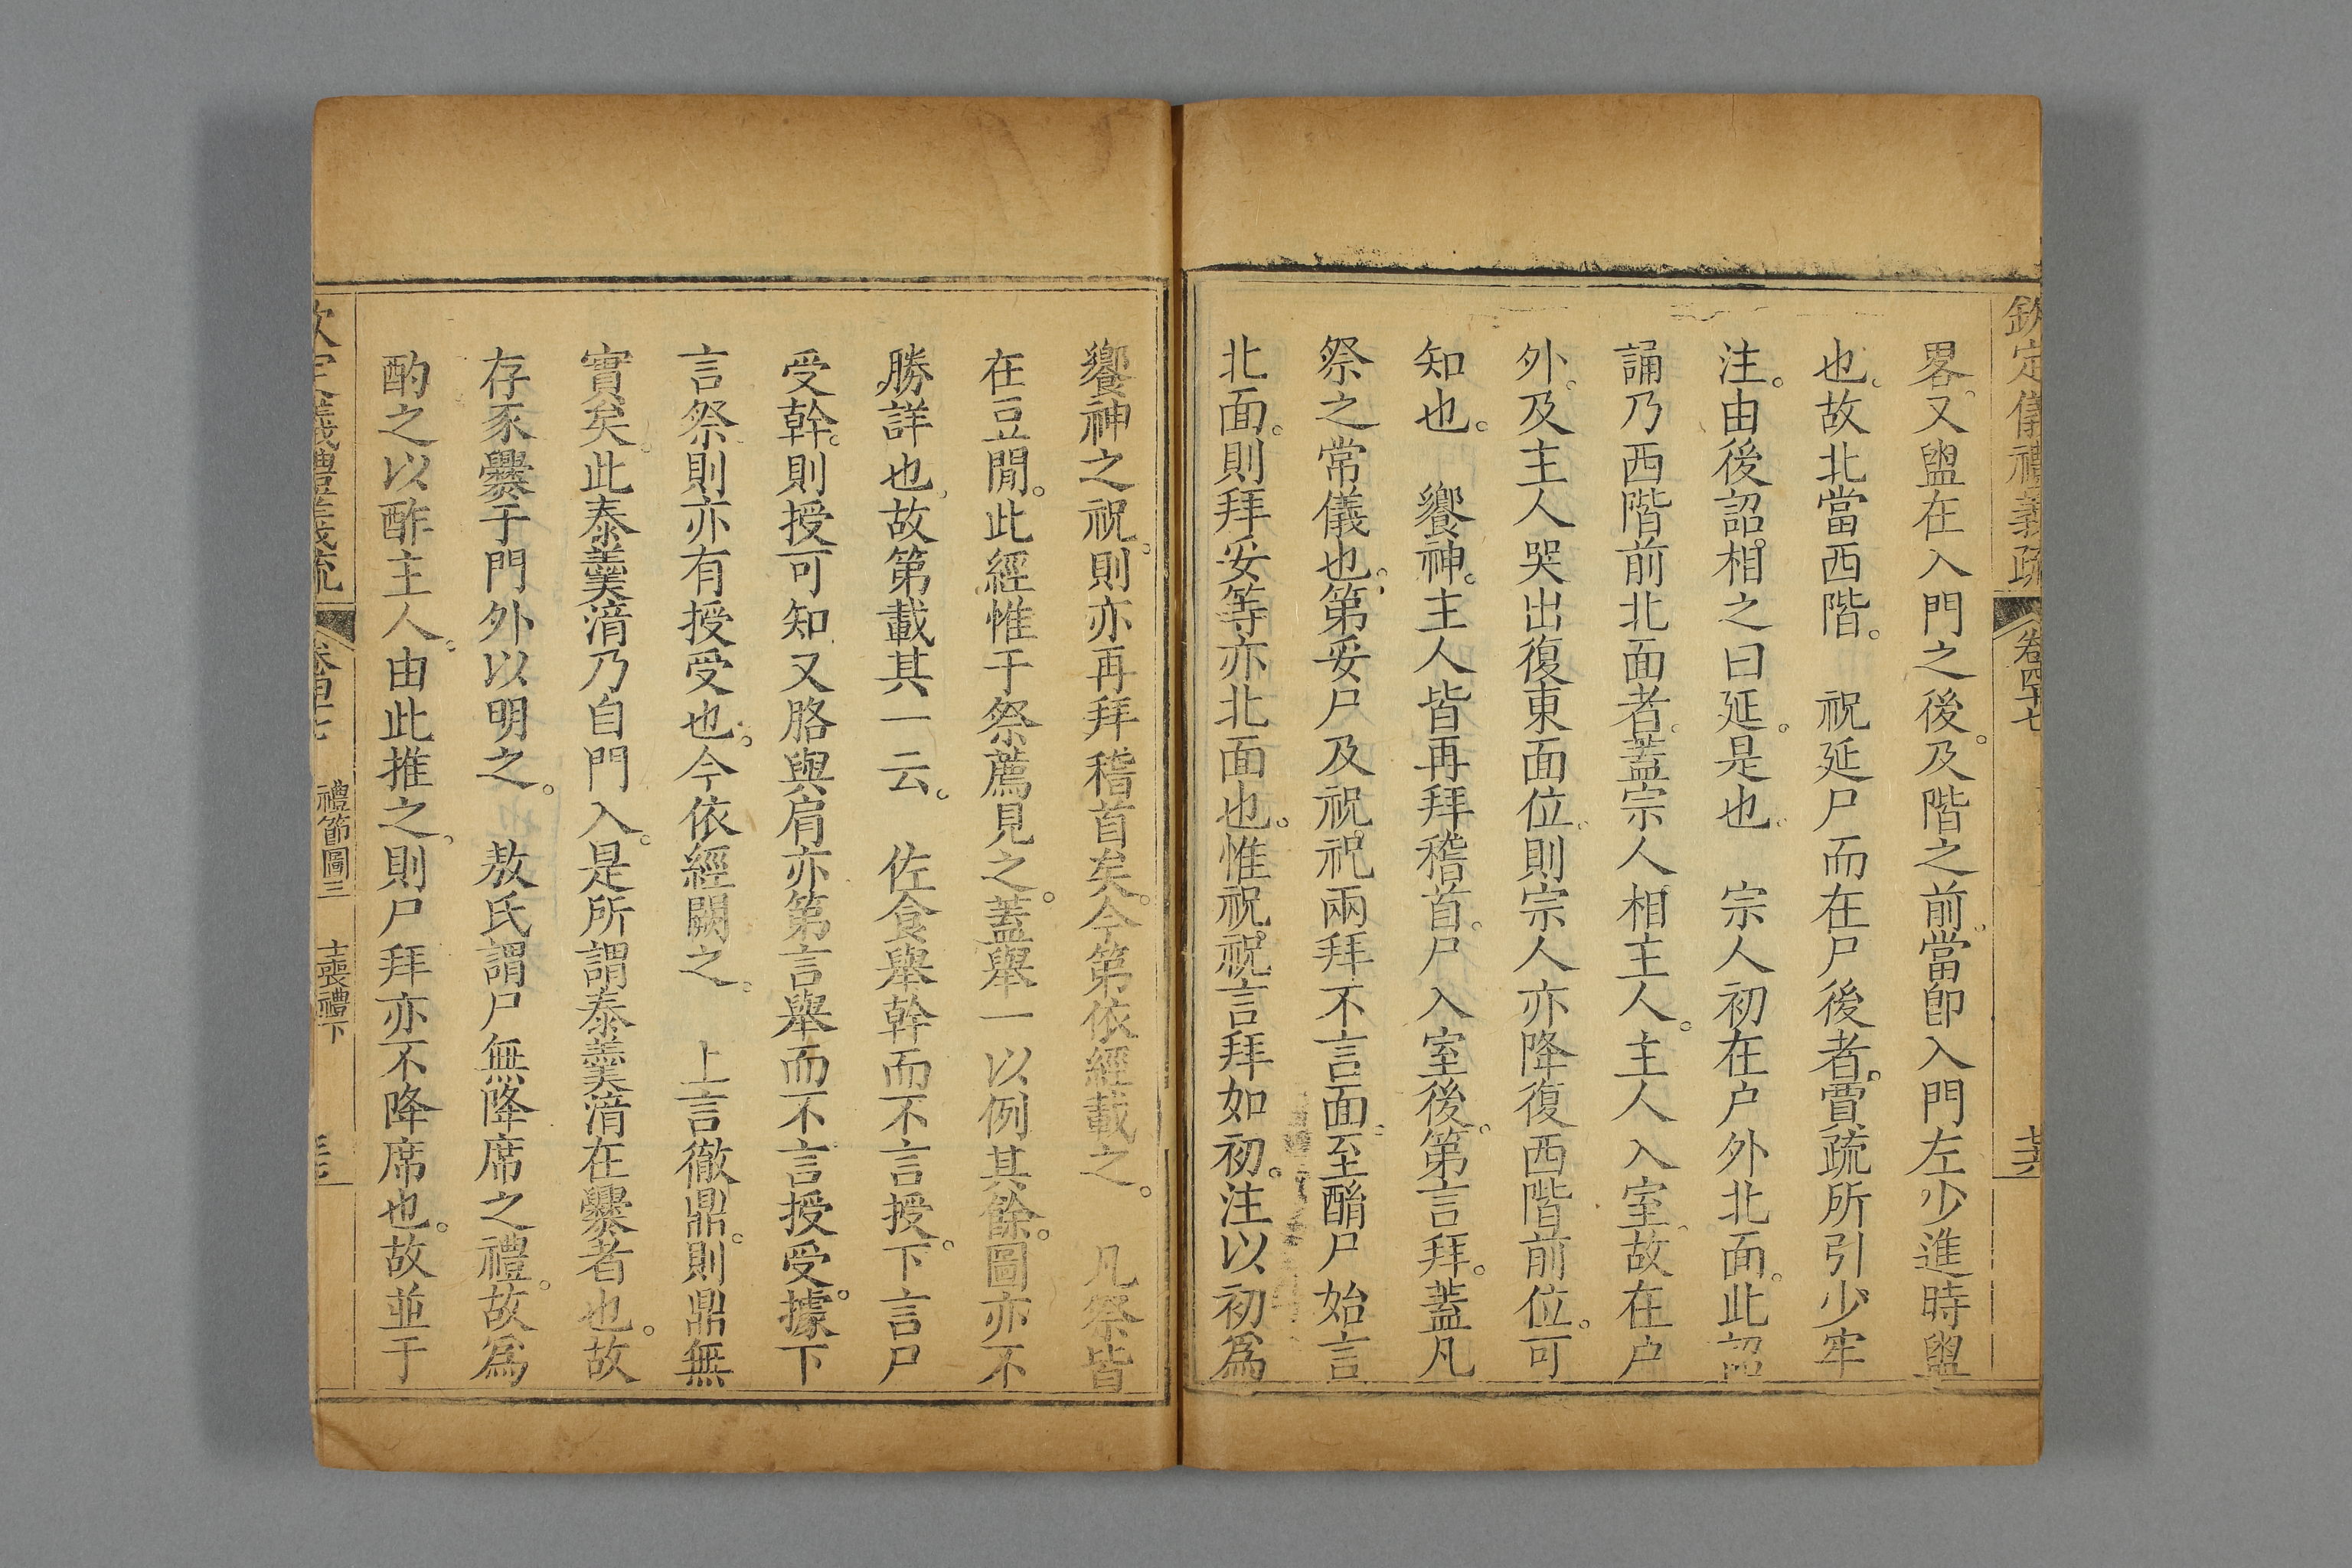 欽定儀禮義疏 卷四十七
畧。又盥在入門之後。及階之前。當卽入門左少進時盥
也。故北當西階。 祝延尸而在尸後者。賈疏所引少牢
注。由後詔相之曰延。是也。 宗人初在户外北面。此詔
誦乃西階前北面者。蓋宗人相主人。主人入室。故在户
外。及主人哭出復東面位。則宗人亦降復西階前位。可
知也。 饗神。主人皆再拜稽首。尸入室後。第言拜。蓋凡
祭之常儀也。第妥尸及祝。祝兩拜不言面。至酳尸始言
北面。則拜妥等亦北面也。惟祝。祝言拜如初。注以初爲
饗神之祝。則亦再拜稽首矣。今第依經載之。 凡祭皆
在豆閒。此經惟于祭薦見之。蓋舉一以例其餘。圖亦不
勝詳也。故第載其一云。 佐食舉幹而不言授。下言尸
受幹。則授可知。又胳與肩亦第言舉而不言授受。據下
言祭則亦有授受也。今依經闕之。 上言徹鼎。則鼎無
實矣。此泰羹湇乃自門入。是所謂泰羹湇在爨者也。故
存豕爨于門外以明之。 敖氏謂尸無降席之禮。故爲
酌之以酢主人。由此推之。則尸拜亦不降席也。故並于
禮節圖三 士喪禮下